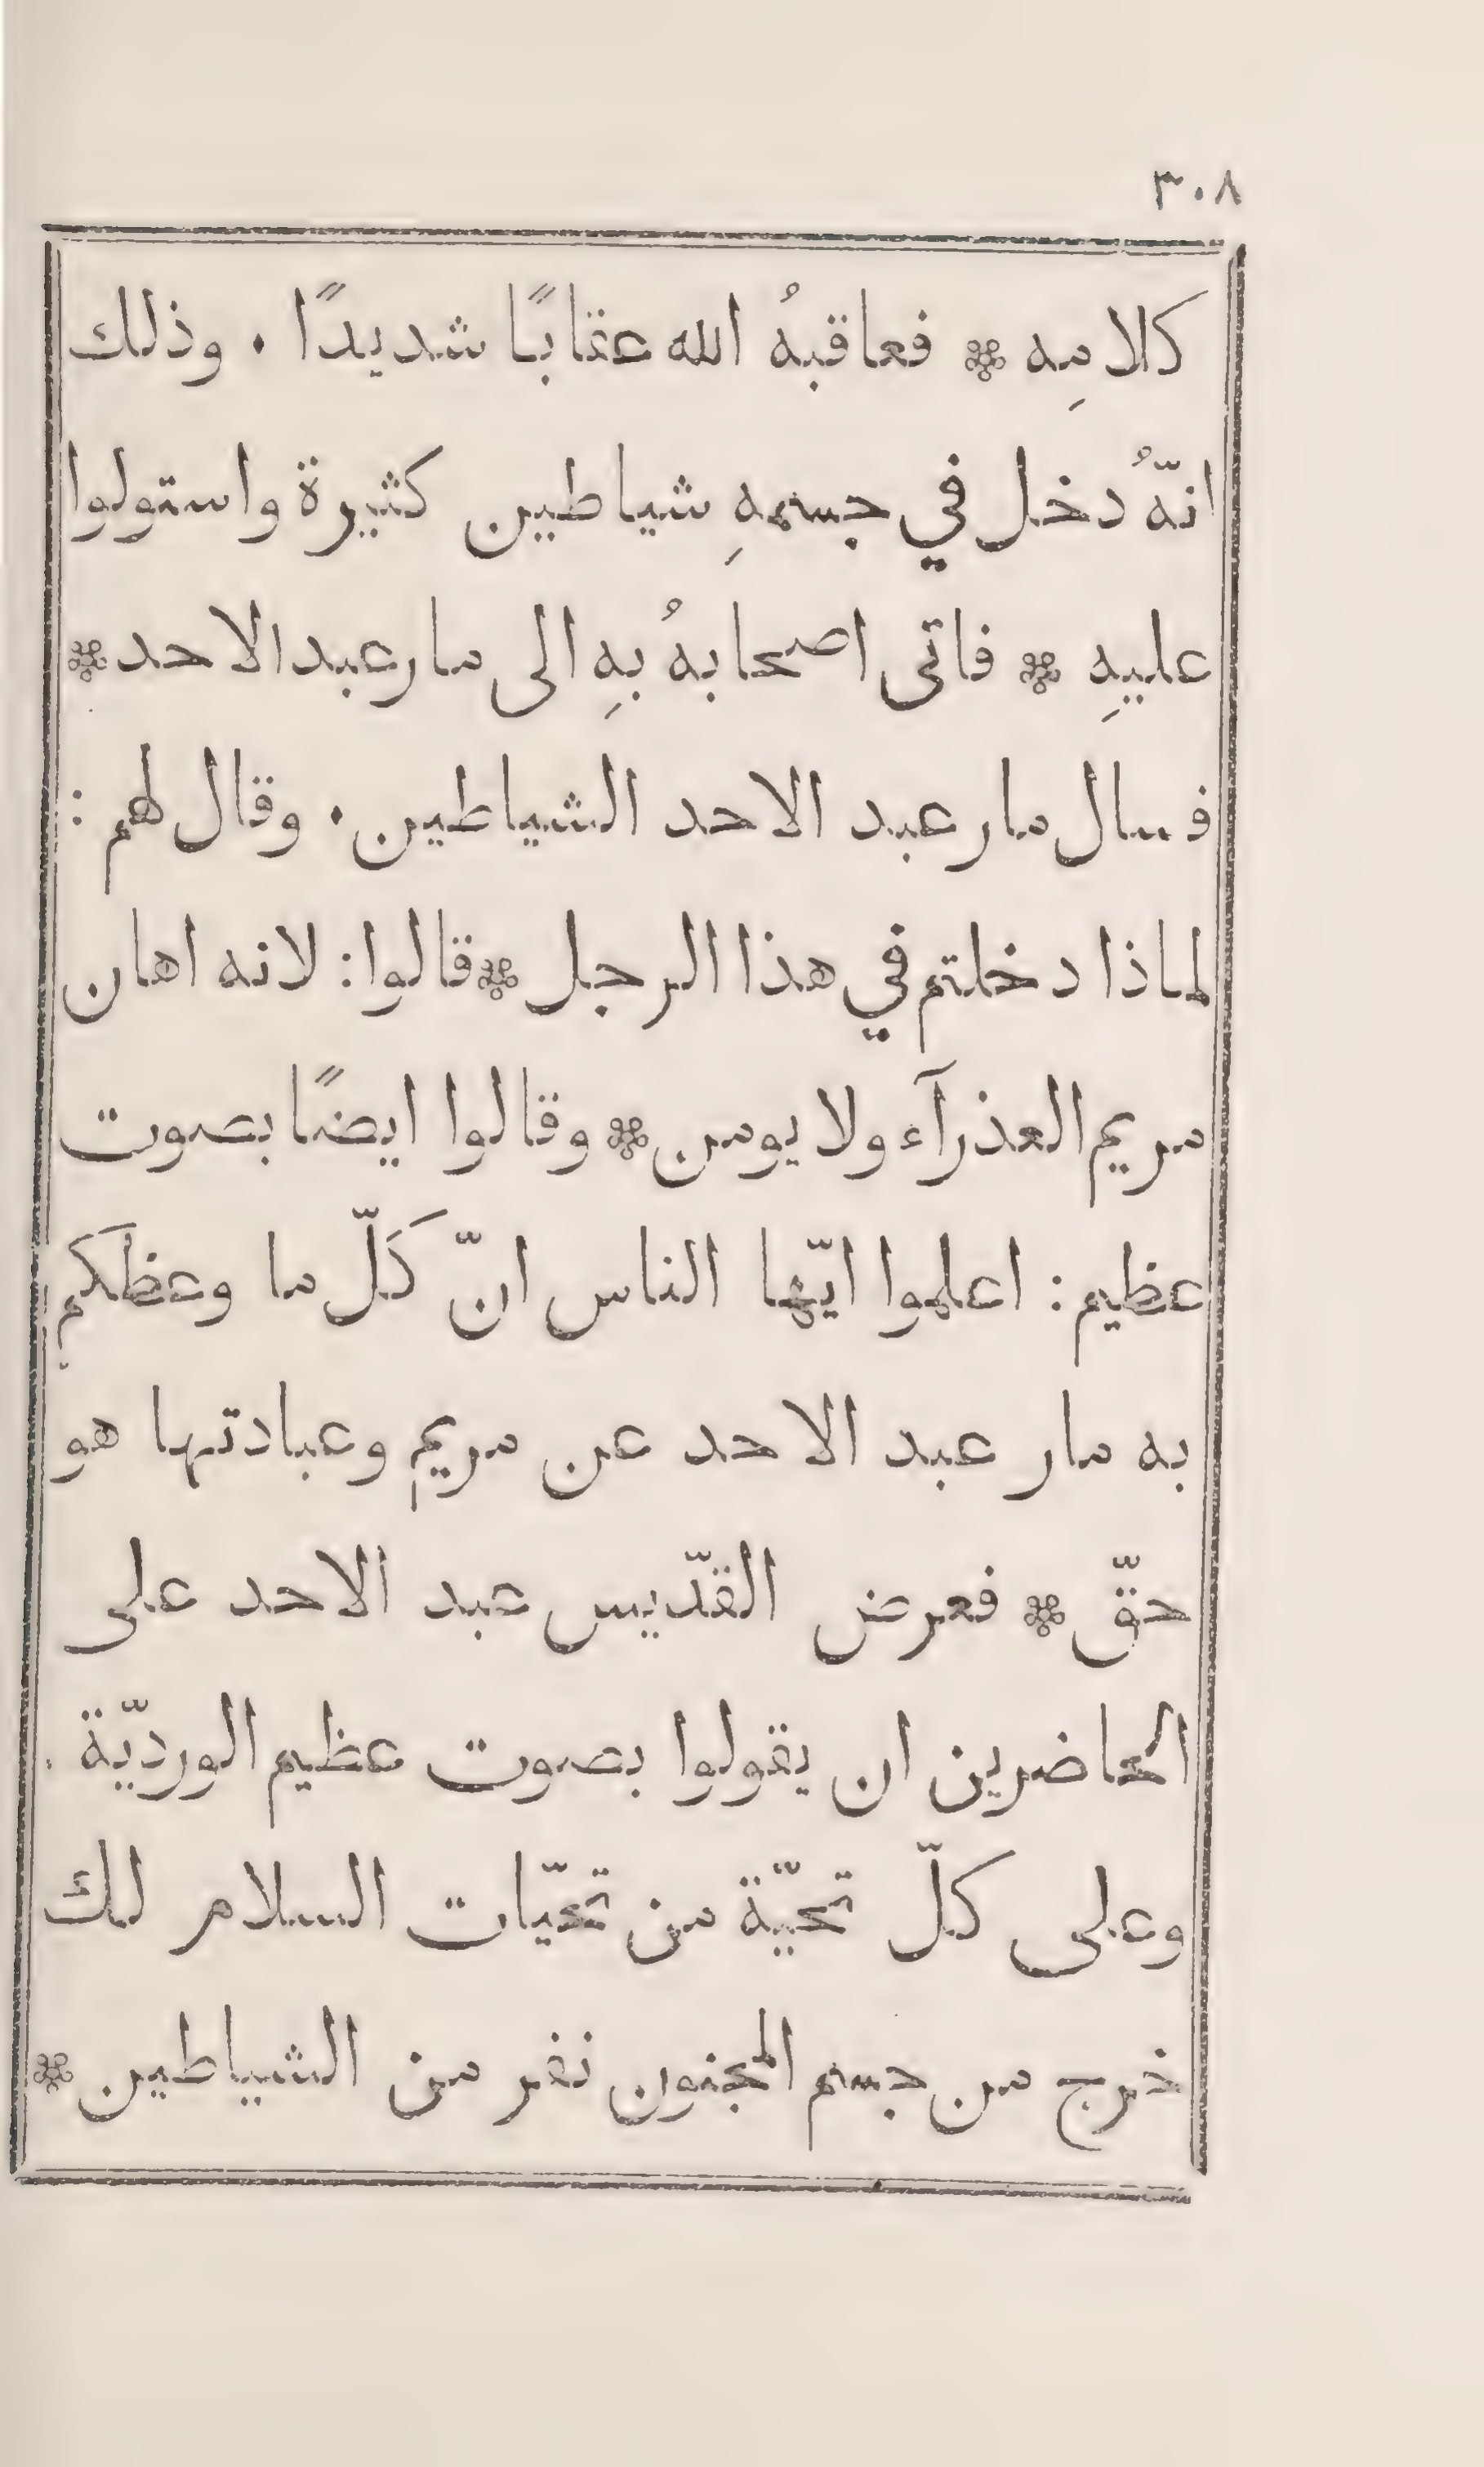 ٣٠٨
كلامِه ❊ فعاقبهُ الله عقابًا شديدًا . وذلك
انّهُ دخل في جسمهِ شياطين كثيرة واستولوا
عليهِ ❊ فاتى اصحابهُ بهِ الى مار عبد الاحد ❊
فسال مار عبد الاحد الشياطين . وقال لهم :
لماذا دخلتم في هذا الرجل ❊ قالوا : لانه اهان
مريم العذرآء ولا يومن ❊ وقالوا ايضًا بصوت
عظيم : اعلموا ايّها الناس انّ كَلّ ما وعظكم
به مار عبد الاحد عن مريم وعبادتها هو
حقّ ❊ فعرض القدّيس عبد الاحد على
الحاضرين ان يقولوا بصوت عظيم الورديّة .
وعلى كلّ تحيّة من تحيّات السلام لك
خرج من جسم المجنون نفر من الشياطين ❊